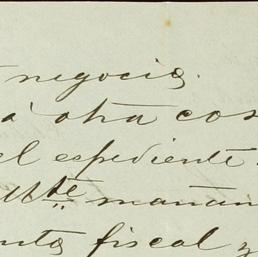 negocio.
á otra cos
el espediente
mañan
fiscal y